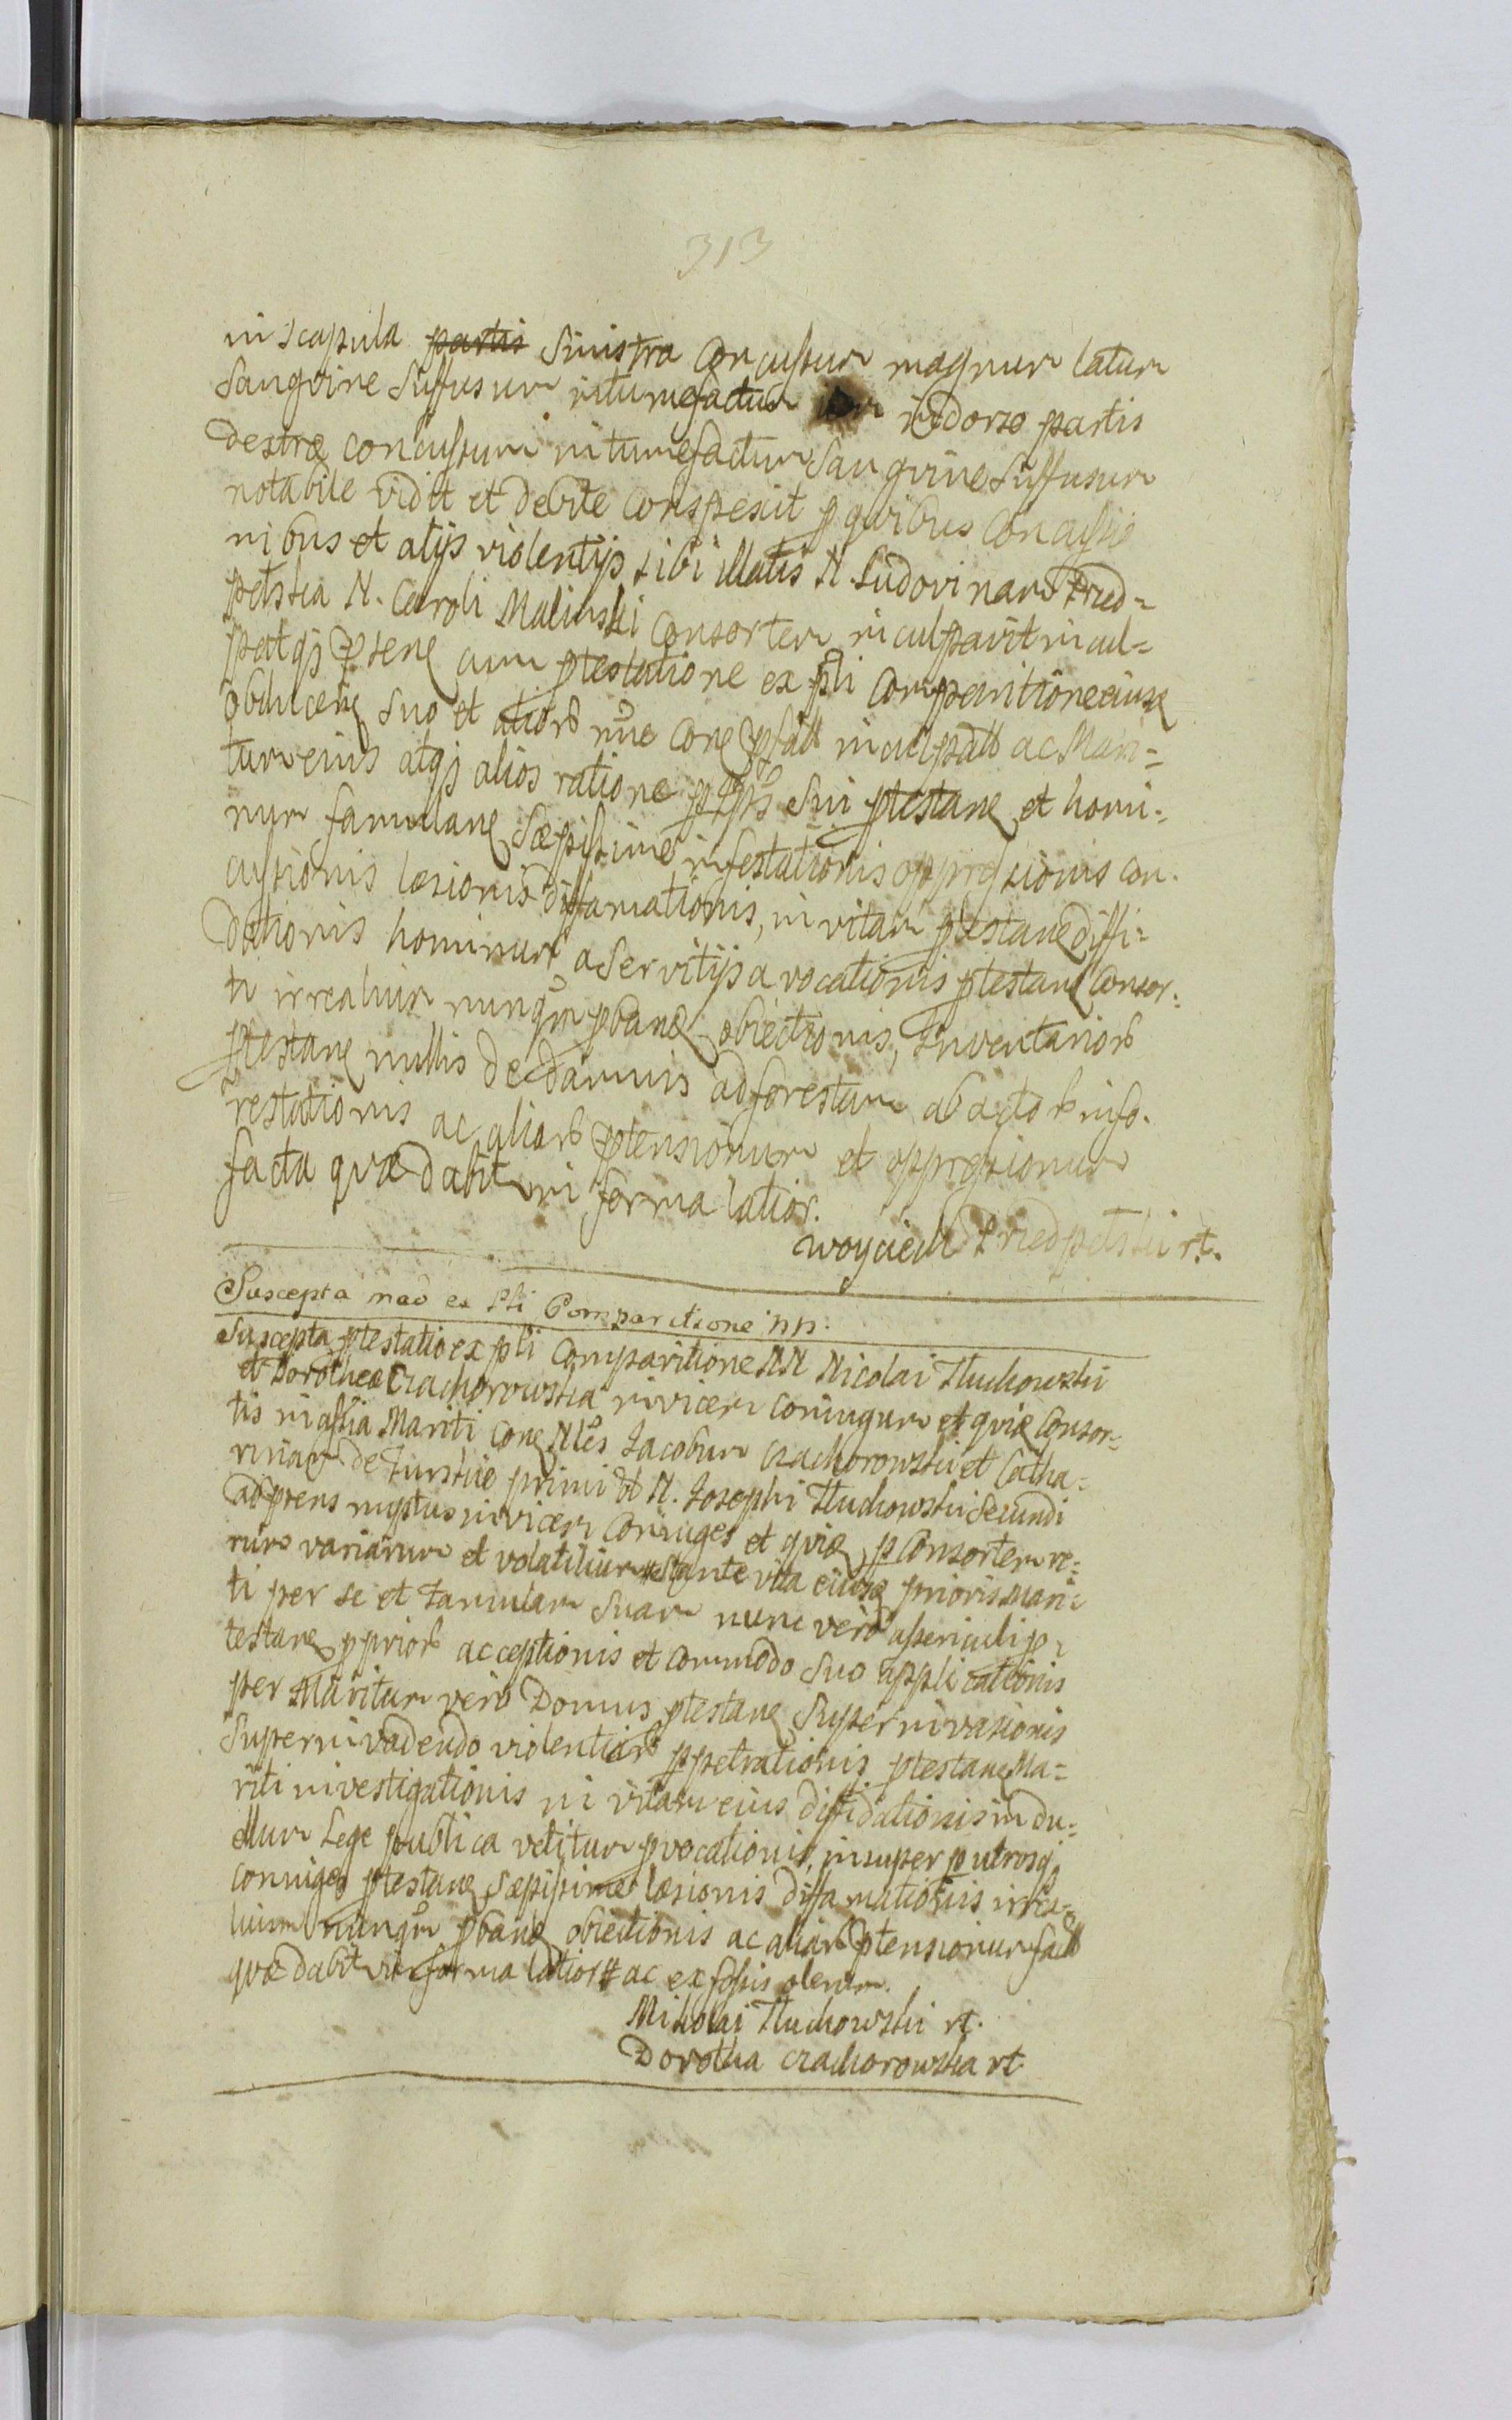 313
in scapula partis Sinistra Concussum magnum latum
Sanguine Suffusum intumefactum in dorso partis
dextrae concussum intumefactum Sanguine Suffusum
notabile vidit et debite Conspexit p quibus Concussio
nibus et alijs violentijs sibi illatis N. Ludovinam Pred=
petska N. Caroli Malinski Consortem inculpavit incul=
patqj ptene cum ptestatione ex pti Comparitione eiusd
obducene suo et alior noie Cone psatt inculpatt ac Mari=
tum eius atqj alios ratione ppts Sui ptestane et homi=
num famulane Saepissime infestationis oppressionis con=
cussionis laesionis diffamationis, in vitam ptestane diffi=
dationis hominum a Servitijs avocationis ptestane Consor=
ti irrealium nunqm pbane obiectionis, Inventarior
ptestane nullis de damnis ad forestam ab actor info=
restationis ac alior ptensionum et oppressionum
facta quae dabitur in forma latior.
Woyciech Predpetski rt.
Suscepta mad ex Pti Comparitione nn.
Suscepta ptestatio ex pti Comparitione NN Nicolai Tluchowski
et Dorothea Czachorowska invicem coniugum et quia Consor=
tis in assia Mariti Cone Nles Jacobum Czachorowski et Catha=
rinam de Turskie primi et N. Josephi Tluchowski Secundi
ad ptens nuptus invicem Coniuges et quia p Consortem re=
rum variarum et volatilium Stante vita eiusd prioris Mari=
ti per se et famulam Suam nunc vero assericuli p=
testane pprior acceptionis et Commodo Suo applicationis
per Maritum vero Domus ptestane Superinvasionis
Superinvadendo violentiar ppetrationis ptestane Ma=
riti investigationis in vitam eius diffidationis in du=
ellum Lege publica vetitum pvocationis, insuper p utrosq
Coniuges ptestane Saepissime laesionis diffamationis irrea=
lium nunqm pbane obiectionis ac aliar ptensionum fact
quae dabitur in forma latior # ac ex fossis olerum.
Mikolai Tluchowski rt.
Dorotha Czachorowska rt